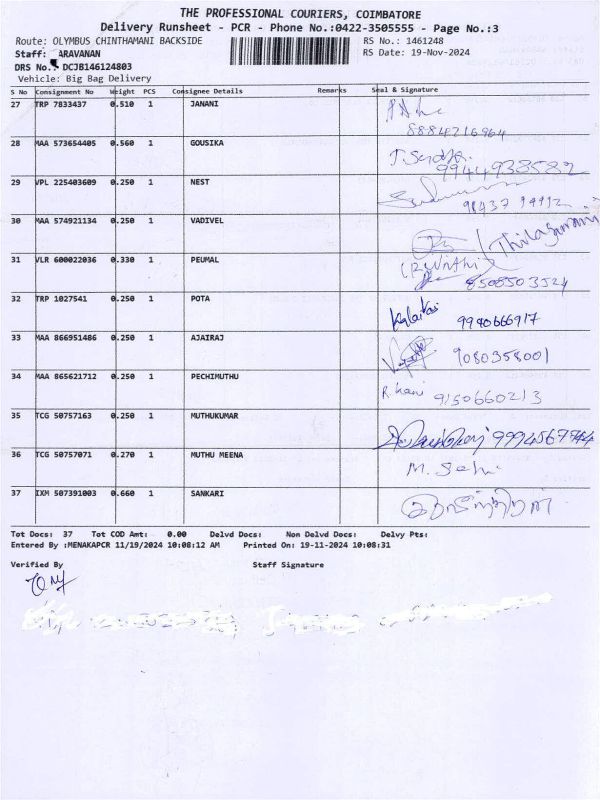 THE PROFESSIONAL COURIERS, COIMBATORE
Delivery Runsheet - PCR - Phone No.:0422-3505555 - Page No.:3
Route: OLYMBUS CHINTHAMANI BACKSIDE RS No.: 1461248
Staff: ARAVANAN RS Date: 19-Nov-2024
DRS No.: DCJB146124803
Vehicle: Big Bag Delivery
S No Consignment No Weight PCS Consignee Details Remarks Seal & Signature
27 TRP 7833437 0.510 1 JANANI
8884216964
28 MAA 573654405 0.560 1 GOUSIKA
9944938582
29 VPL 225403609 0.250 1 NEST
30 MAA 574921134 0.250 1 VADIVEL
31 VLR 600022036 0.330 1 PEUMAL
8508503524
32 TRP 1027541 0.250 1 POTA
9940666917
33 MAA 866951486 0.250 1 AJAIRAJ 9080358001
34 MAA 865621712 0.250 1 PECHIMUTHU
9150660213
35 TCG 50757163 0.250 1 MUTHUKUMAR
36 TCG 50757071 0.270 1 MUTHU MEENA
37 IXM 507391003 0.660 1 SANKARI
Tot Docs: 37 Tot COD Amt: 0.00 Delvd Docs: Non Delvd Docs: Delvy Pts:
Entered By :MENAKAPCR 11/19/2024 10:08:12 AM Printed On: 19-11-2024 10:08:31
Verified By Staff Signature